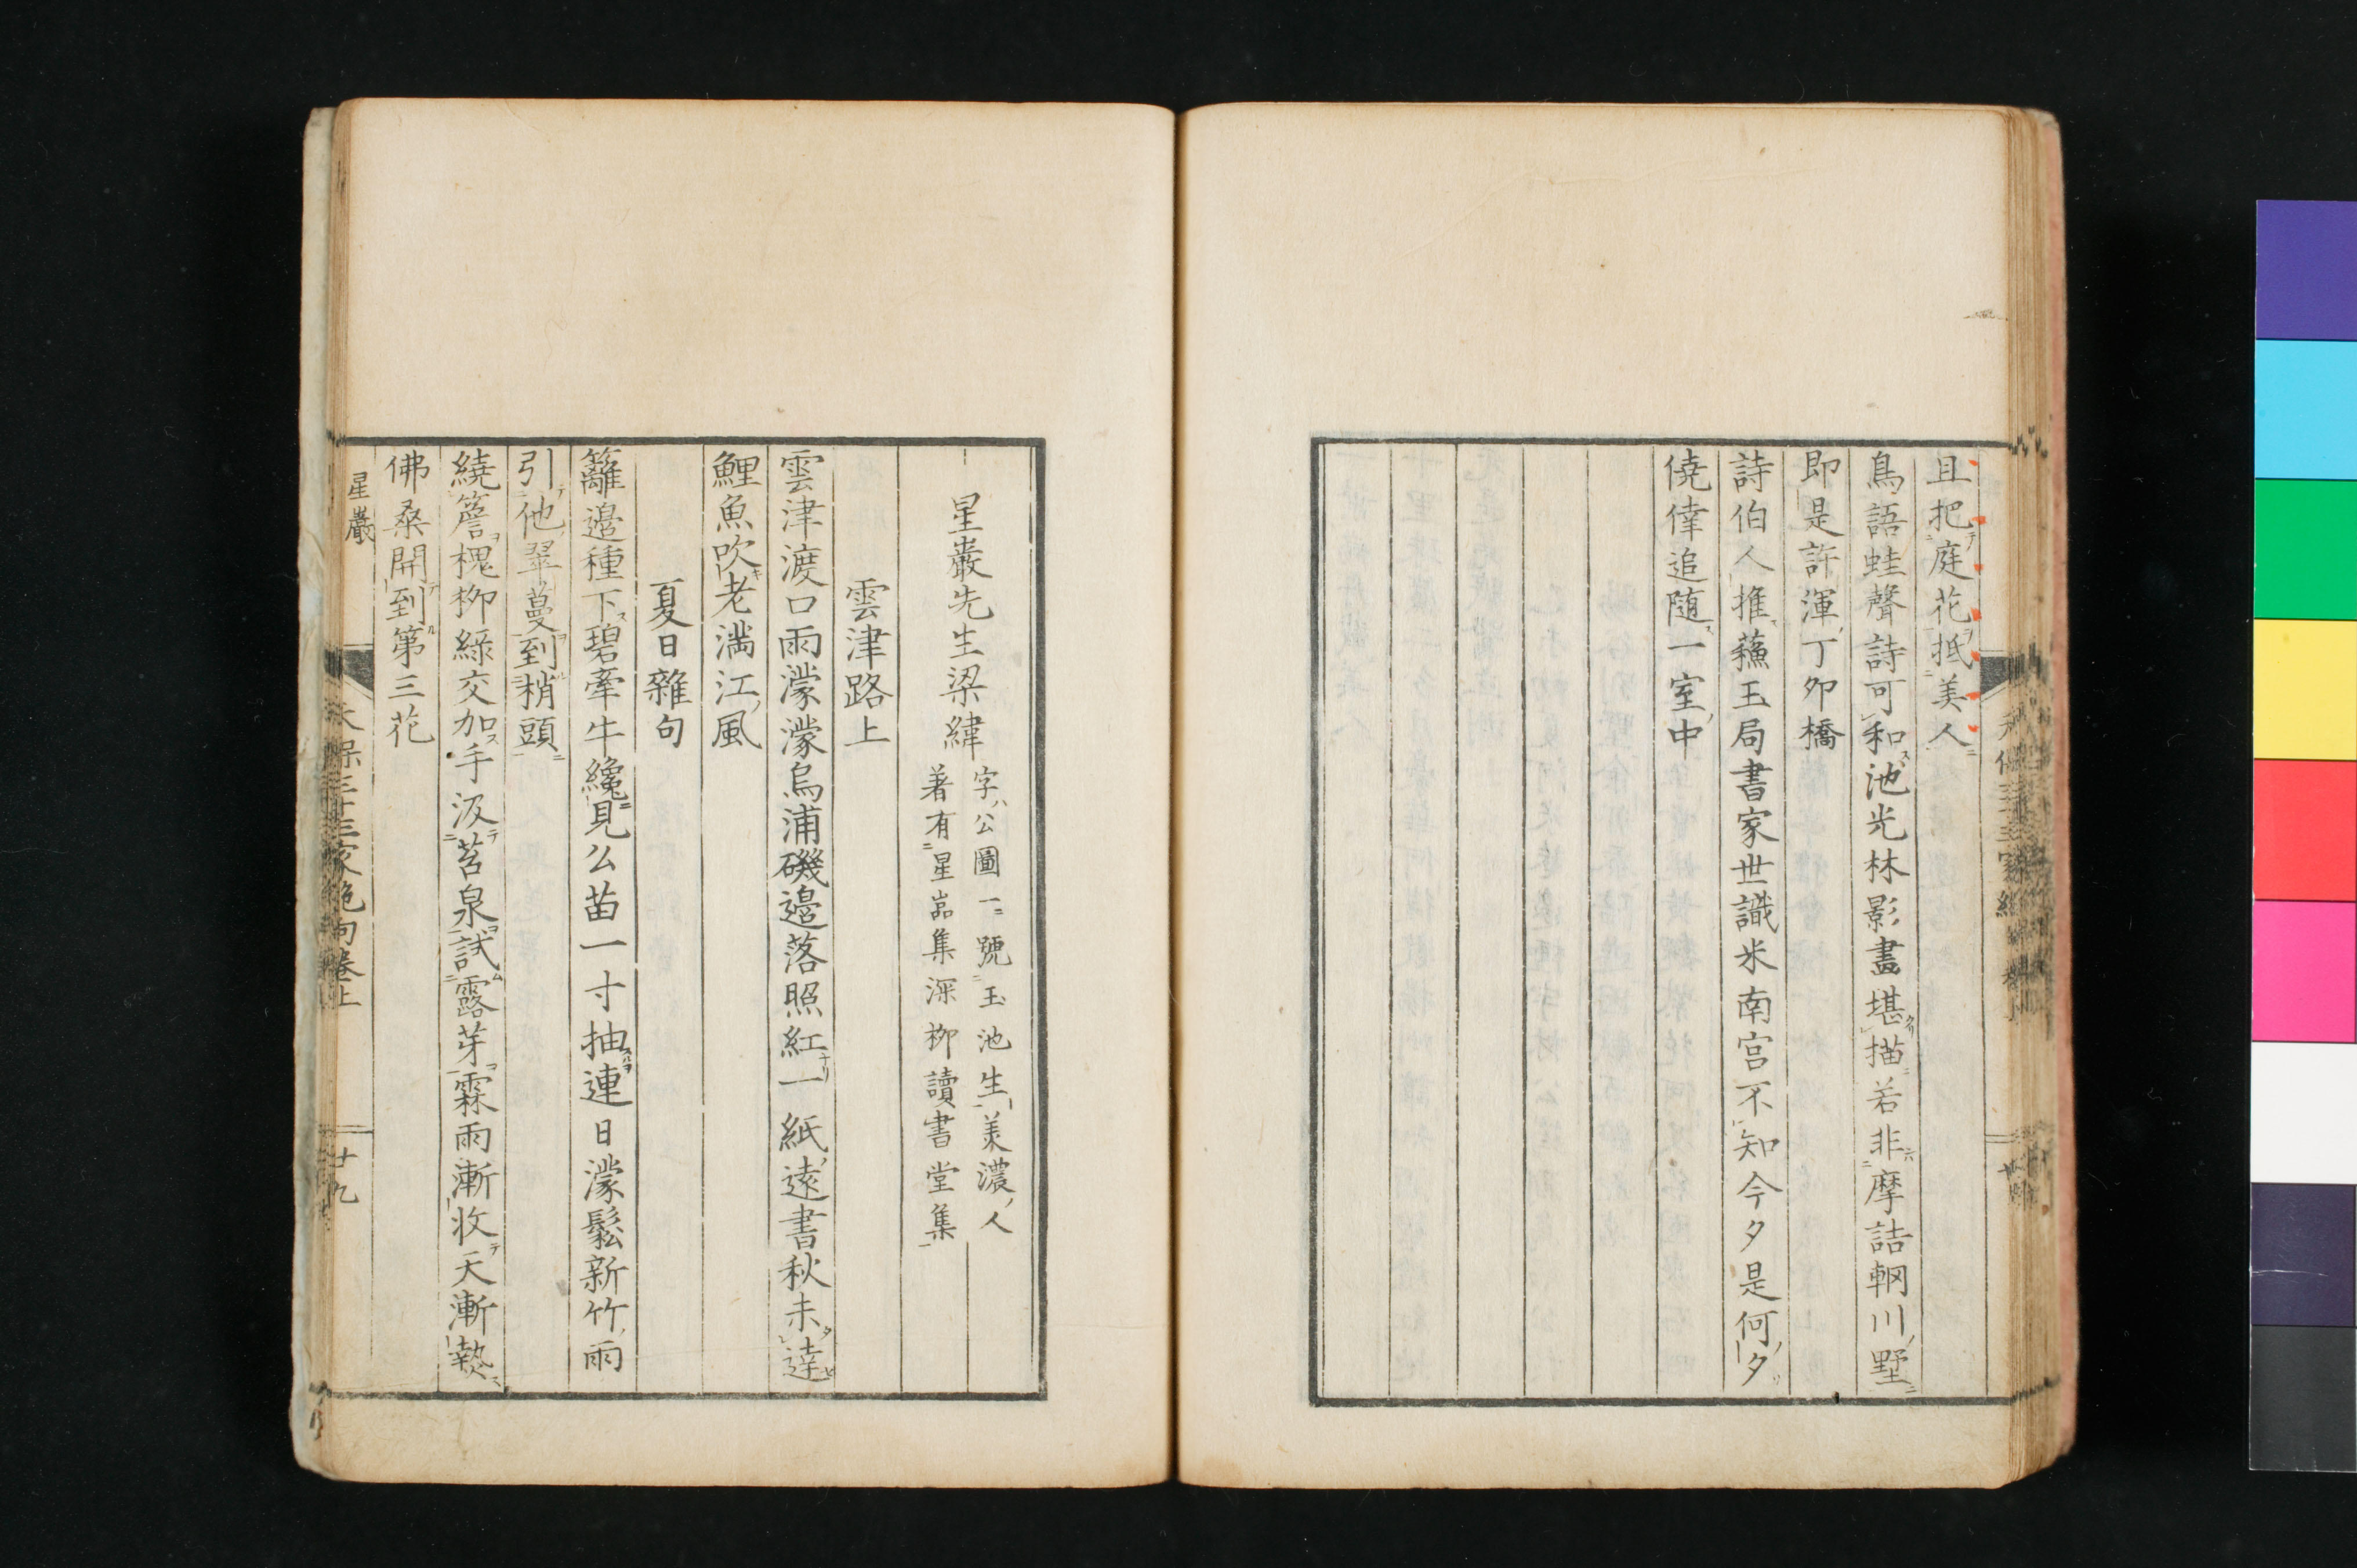 且把庭花抵美人
鳥語蛙聲詩可和池光林影畵堪描若非摩詰輞川墅
即是許渾丁夘橋
詩伯人推蘓玉局書家世識米南宫不知今夕是何夕
僥倖追随一室中
星巖先生梁緯
字公圖一號玉池生美濃人
著有星嵓集深柳讀書堂集
雲津路上
雲津渡口雨濛濛烏浦磯邉落照紅一紙遠書秋未達
鯉魚吹老満江風
夏日雜句
籬邉種下碧牽牛纔見公苗一寸抽連日濛鬆新竹雨
引他翠蔓到梢頭
繞簷槐柳緑交加手汲苔泉試露芽霖雨漸收天漸熱
佛桑開到第三花
星巖
天保三十三家絶句卷上
廿九